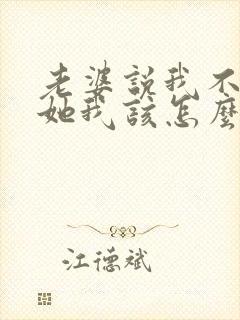 老婆說我不
她我該怎麼
江德斌